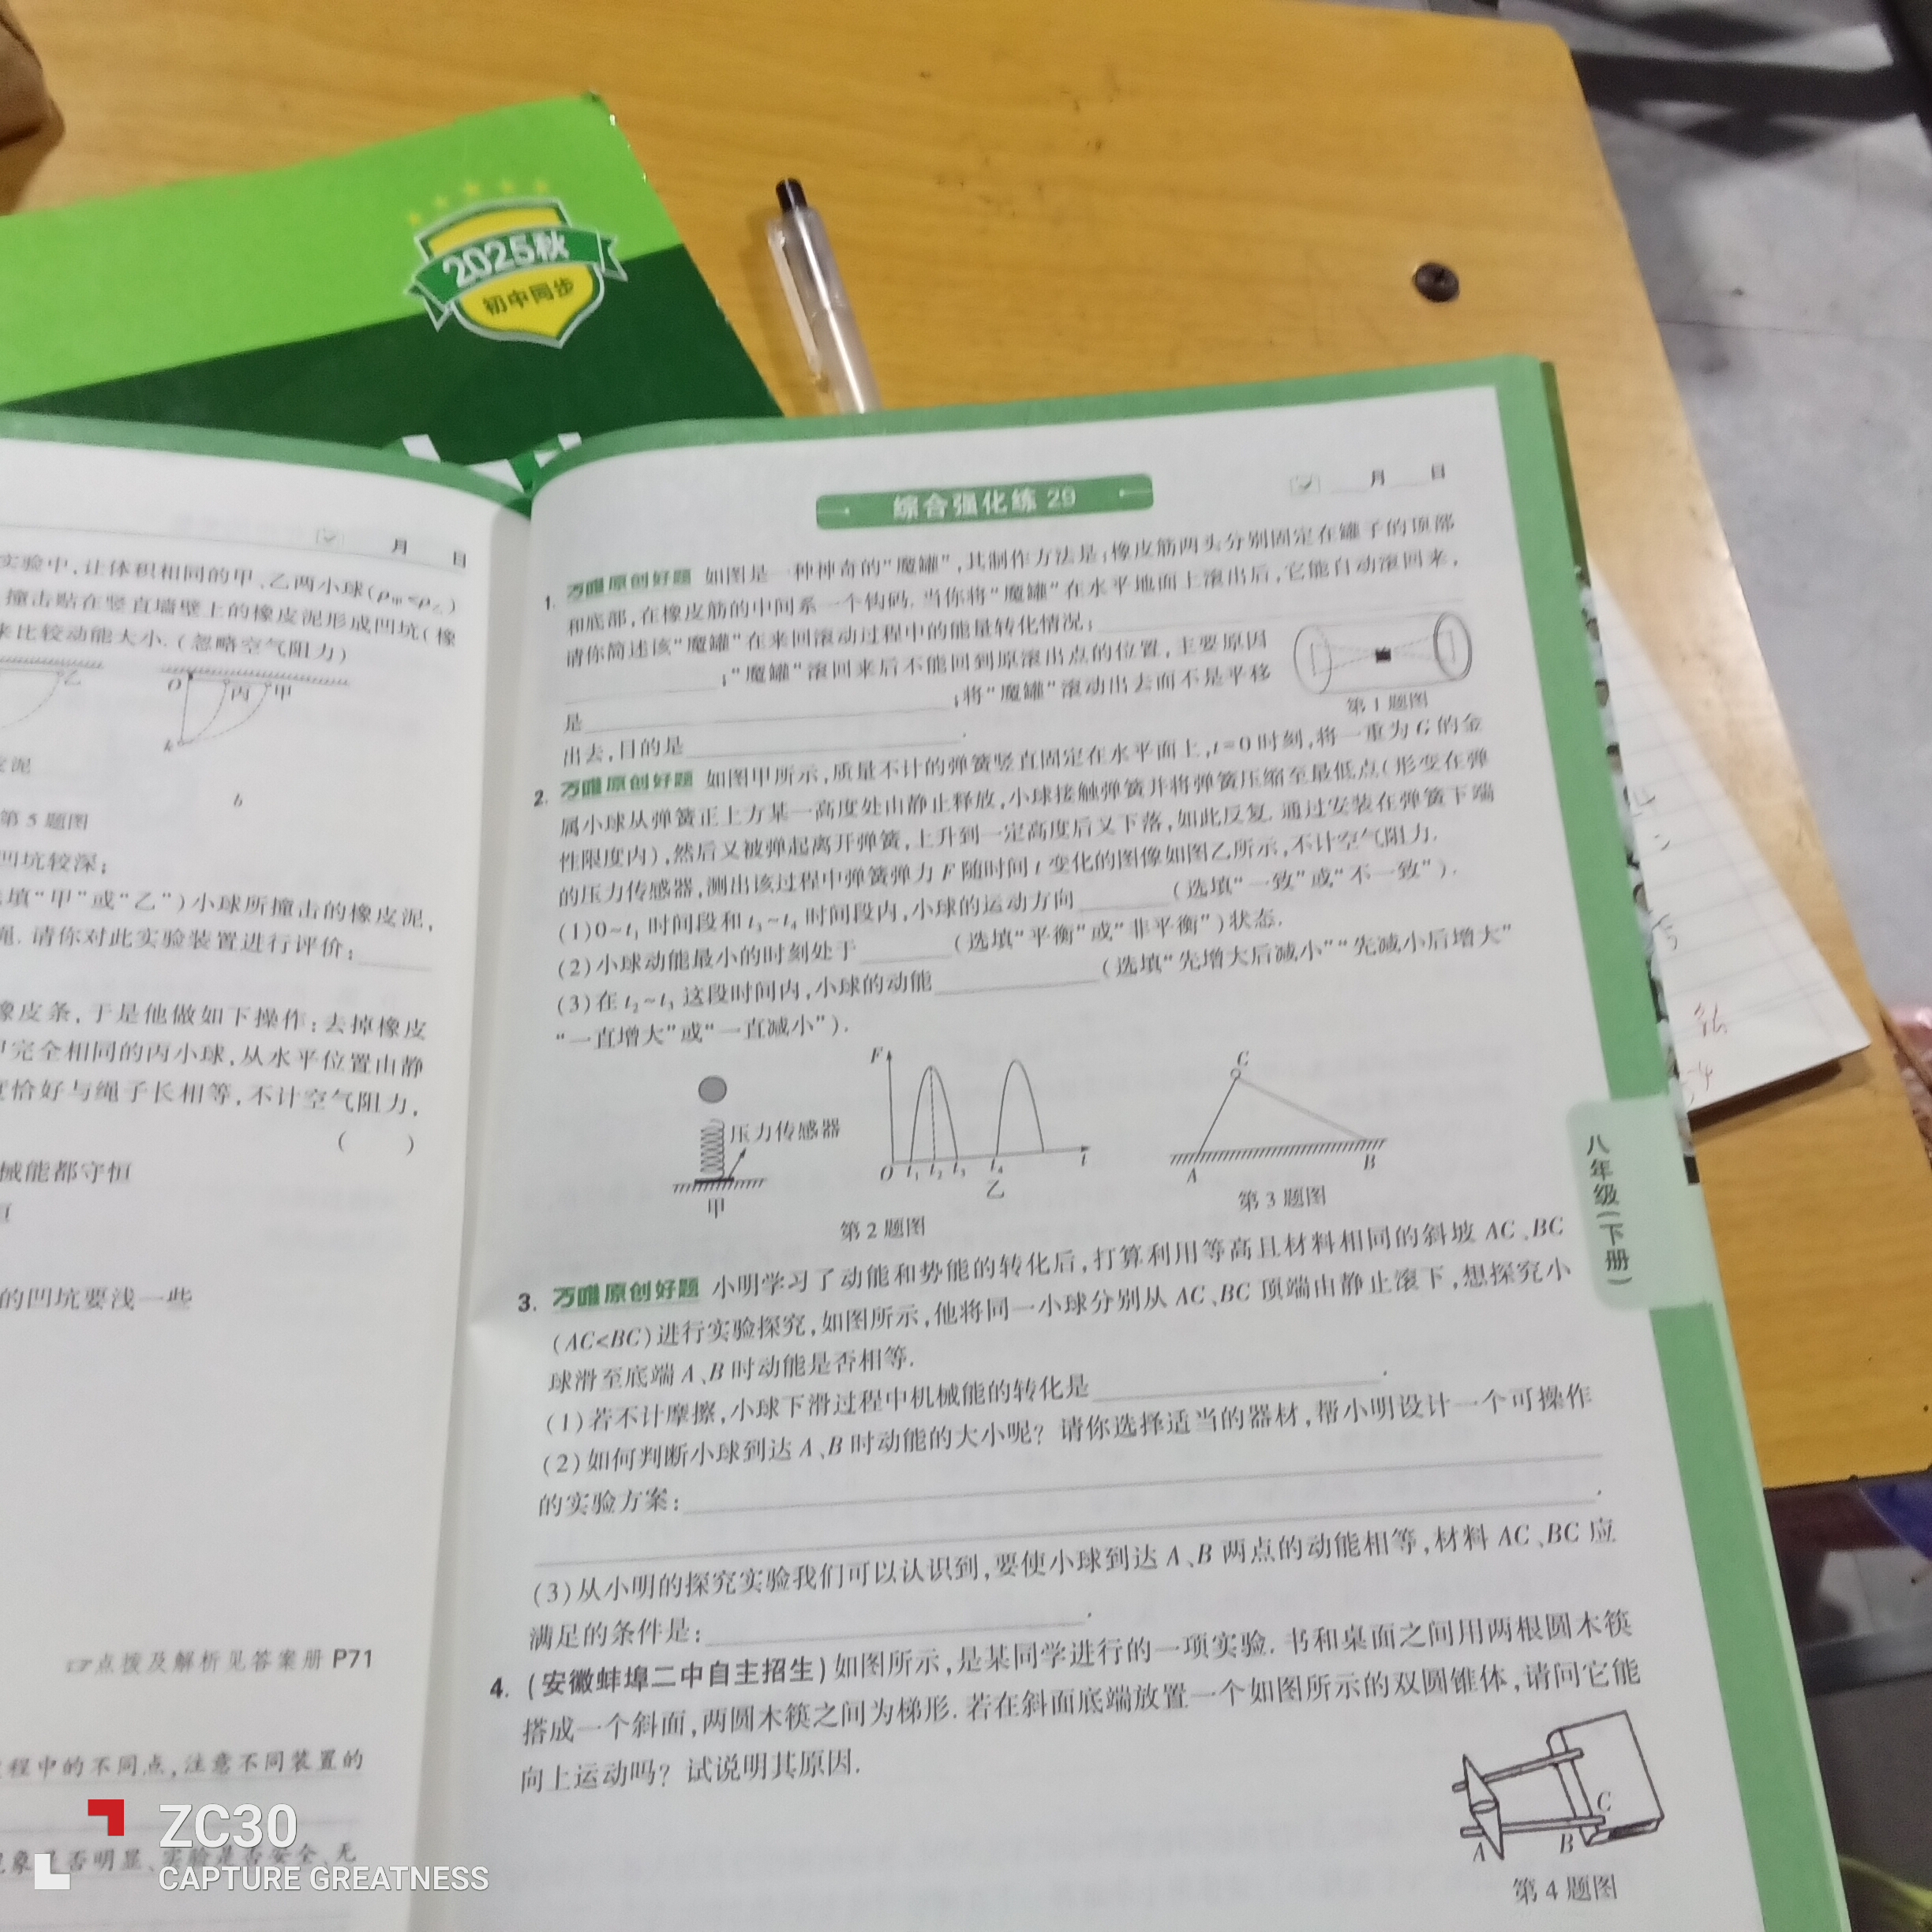 2025秋
初中同步
月 日
实验中,让体积相同的甲、乙两小球(ρ甲<ρ乙)
撞击贴在竖直墙壁上的橡皮泥形成凹坑(橡
来比较动能大小.(忽略空气阻力)
乙
O 丙 甲
b
第5题图
凹坑较深;
填“甲”或“乙”)小球所撞击的橡皮泥,
绳. 请你对此实验装置进行评价:
橡皮条,于是他做如下操作:去掉橡皮
完全相同的丙小球,从水平位置由静
度恰好与绳子长相等,不计空气阻力,
( )
械能都守恒
的凹坑要浅一些
☞点拨及解析见答案册 P71
程中的不同点,注意不同装置的
象是否明显、实验是否安全、无
综合强化练 29
月 日
1. 万唯原创好题 如图是一种神奇的“魔罐”,其制作方法是:橡皮筋两头分别固定在罐子的顶部
和底部,在橡皮筋的中间系一个钩码.当你将“魔罐”在水平地面上滚出后,它能自动滚回来,
请你简述该“魔罐”在来回滚动过程中的能量转化情况:
;“魔罐”滚回来后不能回到原滚出点的位置,主要原因
是 ;将“魔罐”滚动出去而不是平移
出去,目的是 .
第1题图
2. 万唯原创好题 如图甲所示,质量不计的弹簧竖直固定在水平面上,t=0时刻,将一重为G的金
属小球从弹簧正上方某一高度处由静止释放,小球接触弹簧并将弹簧压缩至最低点(形变在弹
性限度内),然后又被弹起离开弹簧,上升到一定高度后又下落,如此反复.通过安装在弹簧下端
的压力传感器,测出该过程中弹簧弹力F随时间t变化的图像如图乙所示,不计空气阻力.
(1)0~t₁时间段和t₃~t₄时间段内,小球的运动方向 (选填“一致”或“不一致”).
(2)小球动能最小的时刻处于 (选填“平衡”或“非平衡”)状态.
(3)在t₂~t₃这段时间内,小球的动能 (选填“先增大后减小”“先减小后增大”
“一直增大”或“一直减小”).
压力传感器
甲
F
O t₁ t₂ t₃ t₄ t
乙
第2题图
C
A B
第3题图
3. 万唯原创好题 小明学习了动能和势能的转化后,打算利用等高且材料相同的斜坡AC、BC
(AC<BC)进行实验探究,如图所示,他将同一小球分别从AC、BC顶端由静止滚下,想探究小
球滑至底端A、B时动能是否相等.
(1)若不计摩擦,小球下滑过程中机械能的转化是 .
(2)如何判断小球到达A、B时动能的大小呢? 请你选择适当的器材,帮小明设计一个可操作
的实验方案:
.
(3)从小明的探究实验我们可以认识到,要使小球到达A、B两点的动能相等,材料AC、BC应
满足的条件是: .
4. (安徽蚌埠二中自主招生)如图所示,是某同学进行的一项实验.书和桌面之间用两根圆木筷
搭成一个斜面,两圆木筷之间为梯形.若在斜面底端放置一个如图所示的双圆锥体,请问它能
向上运动吗? 试说明其原因.
A B C
第4题图
八年级(下册)
ZC30
CAPTURE GREATNESS